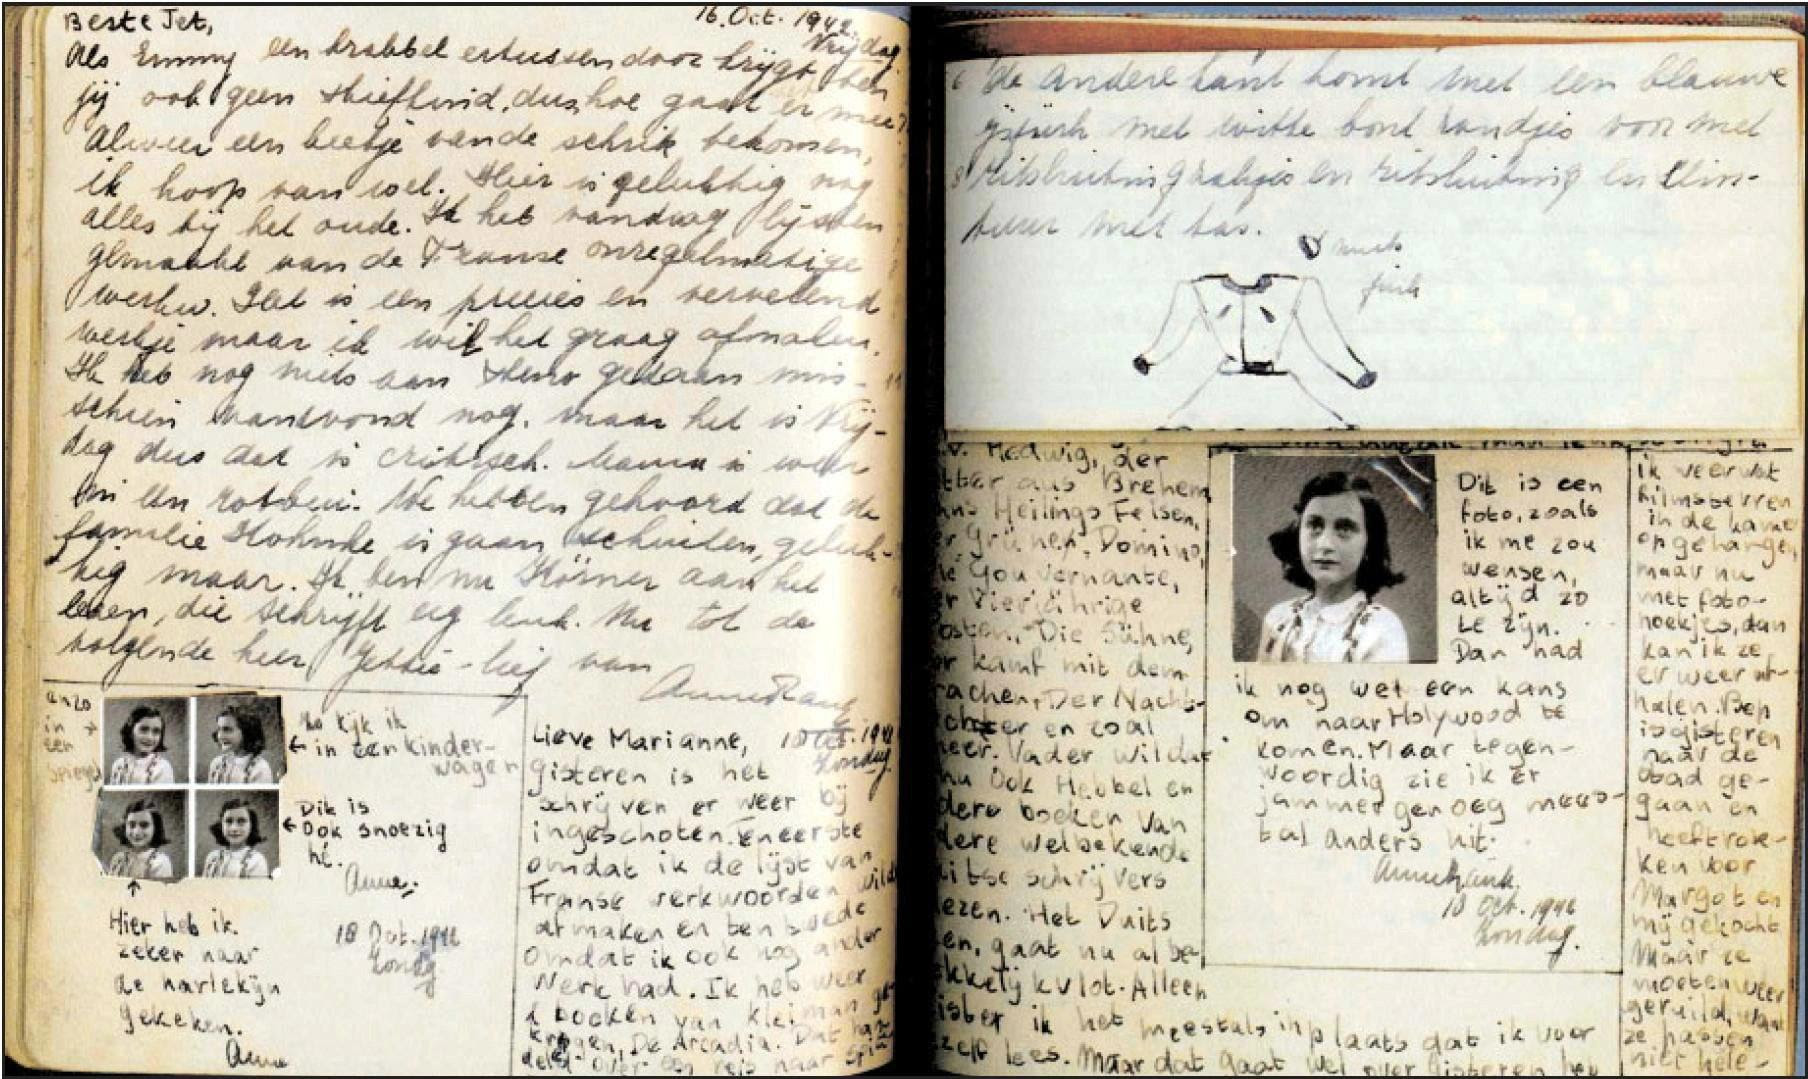 Beste Jet,
16. Oct. 1942.
Vrijdag.
Als Emmy een krabbel ertussendoor krijgt ben
jij ook geen stiefkind, dus hoe gaat er mee?
Alweer een beetje van de schrik bekomen,
ik hoop van wel. Hier is gelukkig nog
alles bij het oude. Ik heb vandaag lijsten
gemaakt van de Franse onregelmatige
werkw. Het is een precies en vervelend
werkje maar ik wil het graag afmaken.
Ik heb nog niets aan Steno gedaan mis-
schien vanavond nog, maar het is Vrij-
dag dus dat is critisch. Mama is weer
in een rotbui. We hebben gehoord dat de
familie is gaan schuilen, geluk-
kig maar. Ik ben nu Körner aan het
lezen, die schrijft erg leuk. Nu tot de
volgende keer Jettie-lief van
Anne Frank
en zo
in →
een
spiegel
Zo kijk ik
← in een kinder-
wagen
Dit is
← Ook snoezig
hè.
Anne.
18 Oct. 1942
Zondag
↑
Hier heb ik
zeker naar
de harlekijn
gekeken.
Anne
Lieve Marianne,
18 Oct. 1942
Zondag.
Gisteren is het
schrijven er weer bij
ingeschoten. Teneerste
omdat ik de lijst van
Franse werkwoorden wilde
afmaken en ten tweede
omdat ik ook nog ander
werk had. Ik heb weer
2 boeken van Kleiman ge-
kregen, De Arcadia. Dat han-
delt over een reis naar Spitz
de andere kant komt met een blauwe
ijsjurk met witte bont randjes voor met
ritssluiting zakjes en ritssluiting en
met tas.
v. Hedwig, der
tter aus Brehem
ans Heilings Felsen,
er Grüner, Domino,
ie Gouvernante,
er Vierjährige
osten, Die Sühne,
er kamf mit dem
rachen, Der Nacht-
chter en zoal
meer. Vader wil dat
nu Ook Hebbel en
dere boeken van
dere welbekende
uitse schrijvers
lezen. Het Duits
en, gaat nu al be-
kkelijk vlot. Alleen
ister ik het meestal inplaats dat ik voor
zelf lees. Maar dat gaat wel over gisteren heb
Dit is een
foto, zoals
ik me zou
wensen,
altijd zo
te zijn.
Dan had
ik nog wel een kans
om naar Holywood te
komen. Maar tegen-
woordig zie ik er
jammer genoeg mees-
tal anders uit.
Anne Frank.
18 Oct. 1942
Zondag.
ik veer wat
filmsterren
in de kamer
opgehangen,
maar nu
met foto-
hoekjes, dan
kan ik ze
er weer uit-
halen. Bep
is gisteren
naar de
stad ge-
gaan en
heeft rok-
ken voor
Margot en
mij gekocht
Maar ze
moeten weer
geruild, want
ze passen
niet hele-